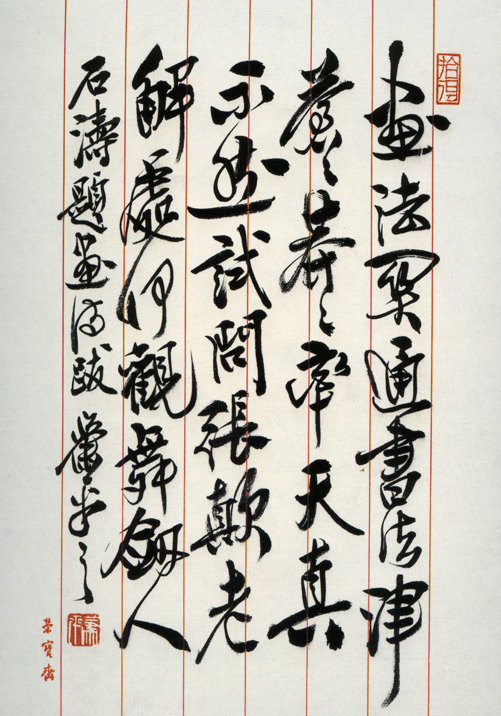 畫法関通書法津
蒼〻莽〻率天真
不然試問張顛老
解處何觀舞劍人
石濤題畫詩跋 蕭平
榮寶齋